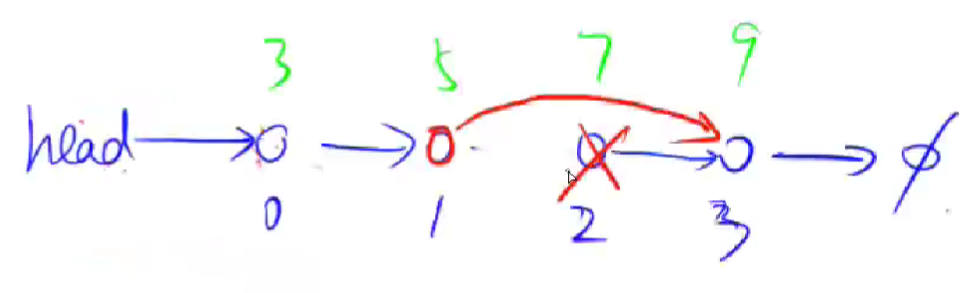 3 5 7 9
head → O → O O → O → ∅
0 1 2 3